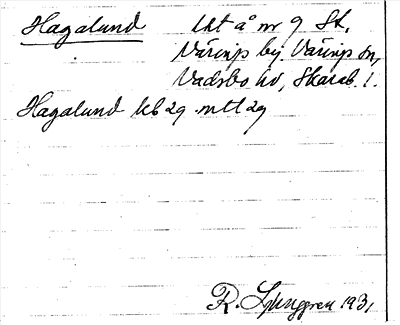 Hagalund Lht å nr 9 St.
Väring by, Väring sn,
Vadsbo hd, Skarab. l.
Hagalund kb 29 mtl 29
R. Ljunggren 1931